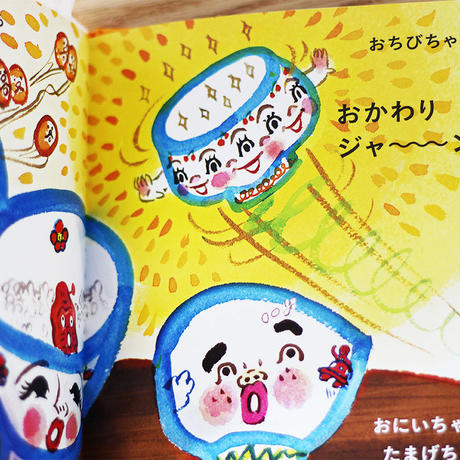 おちびちゃ
おかわり
ジャ〜〜〜ン
おにいちゃ
たまげち